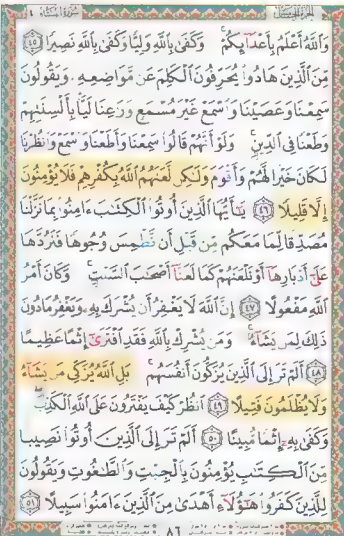 وَاللَّهُ أَعْلَمُ بِأَعْدَائِكُمْ ۚ وَكَفَىٰ بِاللَّهِ وَلِيًّا وَكَفَىٰ بِاللَّهِ نَصِيرًا ٤٥
مِّنَ الَّذِينَ هَادُوا يُحَرِّفُونَ الْكَلِمَ عَن مَّوَاضِعِهِ وَيَقُولُونَ
سَمِعْنَا وَعَصَيْنَا وَاسْمَعْ غَيْرَ مُسْمَعٍ وَرَاعِنَا لَيًّا بِأَلْسِنَتِهِمْ
وَطَعْنًا فِي الدِّينِ ۚ وَلَوْ أَنَّهُمْ قَالُوا سَمِعْنَا وَأَطَعْنَا وَاسْمَعْ وَانظُرْنَا
لَكَانَ خَيْرًا لَّهُمْ وَأَقْوَمَ وَلَٰكِن لَّعَنَهُمُ اللَّهُ بِكُفْرِهِمْ فَلَا يُؤْمِنُونَ
إِلَّا قَلِيلًا ٤٦ يَا أَيُّهَا الَّذِينَ أُوتُوا الْكِتَابَ آمِنُوا بِمَا نَزَّلْنَا
مُصَدِّقًا لِّمَا مَعَكُم مِّن قَبْلِ أَن نَّطْمِسَ وُجُوهًا فَنَرُدَّهَا
عَلَىٰ أَدْبَارِهَا أَوْ نَلْعَنَهُمْ كَمَا لَعَنَّا أَصْحَابَ السَّبْتِ ۚ وَكَانَ أَمْرُ
اللَّهِ مَفْعُولًا ٤٧ إِنَّ اللَّهَ لَا يَغْفِرُ أَن يُشْرَكَ بِهِ وَيَغْفِرُ مَا دُونَ
ذَٰلِكَ لِمَن يَشَاءُ ۚ وَمَن يُشْرِكْ بِاللَّهِ فَقَدِ افْتَرَىٰ إِثْمًا عَظِيمًا
٤٨ أَلَمْ تَرَ إِلَى الَّذِينَ يُزَكُّونَ أَنفُسَهُم ۚ بَلِ اللَّهُ يُزَكِّي مَن يَشَاءُ
وَلَا يُظْلَمُونَ فَتِيلًا ٤٩ انظُرْ كَيْفَ يَفْتَرُونَ عَلَى اللَّهِ الْكَذِبَ ۖ
وَكَفَىٰ بِهِ إِثْمًا مُّبِينًا ٥٠ أَلَمْ تَرَ إِلَى الَّذِينَ أُوتُوا نَصِيبًا
مِّنَ الْكِتَابِ يُؤْمِنُونَ بِالْجِبْتِ وَالطَّاغُوتِ وَيَقُولُونَ
لِلَّذِينَ كَفَرُوا هَٰؤُلَاءِ أَهْدَىٰ مِنَ الَّذِينَ آمَنُوا سَبِيلًا ٥١
٨٦